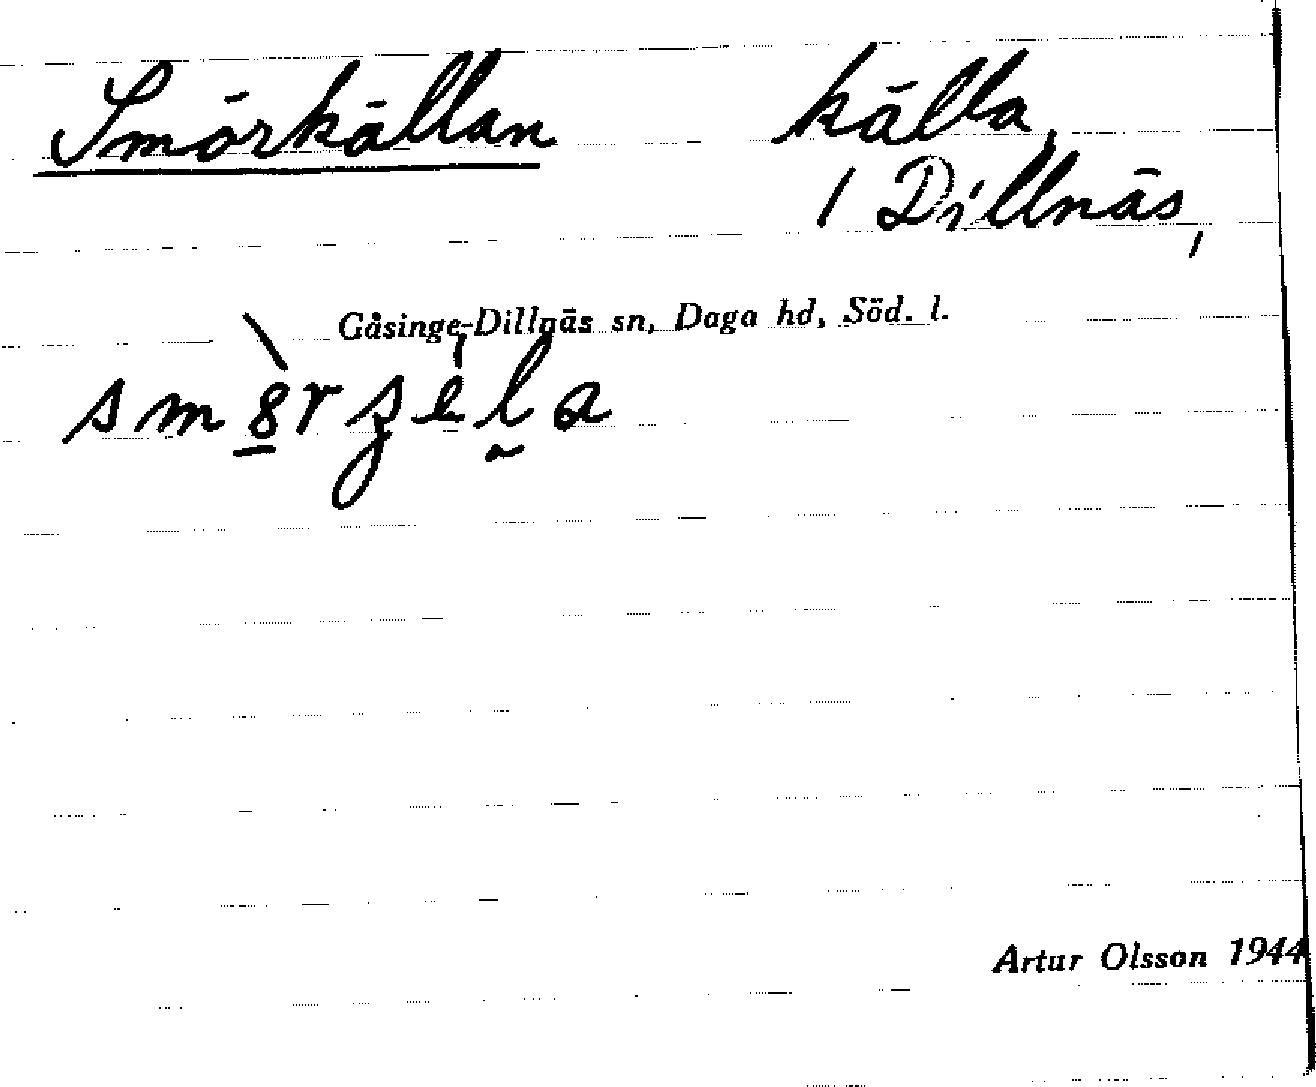 Smörkällan källa,
1 Dillnäs,
Gåsinge-Dillnäs sn, Daga hd, Söd. l.
Artur Olsson 1944